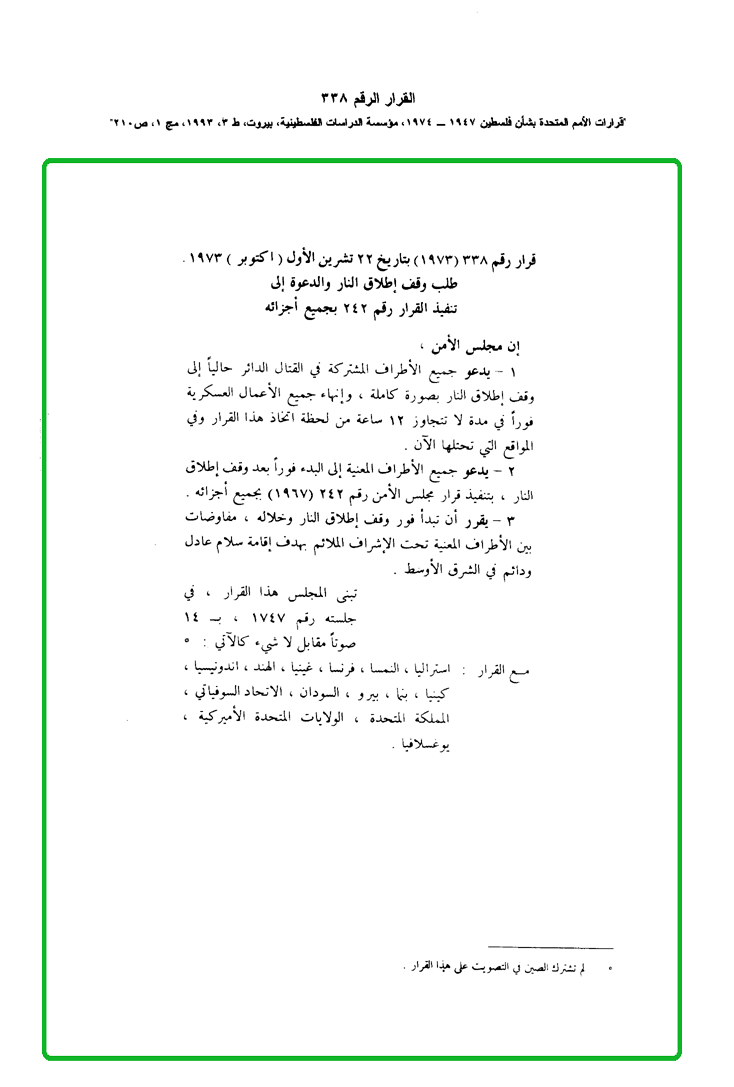 القرار الرقم ٣٣٨
"قرارات الأمم المتحدة بشأن فلسطين ١٩٤٧ ــ ١٩٧٤، مؤسسة الدراسات الفلسطينية، بيروت، ط ٣، ١٩٩٣، مج ١، ص٢١٠"
قرار رقم ٣٣٨ (١٩٧٣) بتاريخ ٢٢ تشرين الأول ( اكتوبر ) ١٩٧٣ .
طلب وقف إطلاق النار والدعوة إلى
تنفيذ القرار رقم ٢٤٢ بجميع أجزائه
إن مجلس الأمن ،
١ - يدعو جميع الأطراف المشتركة في القتال الدائر حالياً إلى
وقف إطلاق النار بصورة كاملة ، وإنهاء جميع الأعمال العسكرية
فوراً في مدة لا تتجاوز ١٢ ساعة من لحظة اتخاذ هذا القرار وفي
المواقع التي تحتلها الآن .
٢ - يدعو جميع الأطراف المعنية إلى البدء فوراً بعد وقف إطلاق
النار ، بتنفيذ قرار مجلس الأمن رقم ٢٤٢ (١٩٦٧) بجميع أجزائه .
٣ - يقرر أن تبدأ فور وقف إطلاق النار وخلاله ، مفاوضات
بين الأطراف المعنية تحت الإشراف الملائم بهدف إقامة سلام عادل
ودائم في الشرق الأوسط .
تبنى المجلس هذا القرار ، في
جلسته رقم ١٧٤٧ ، بــ ١٤
صوتاً مقابل لا شيء كالآتي : ٥
مــع القرار : استراليا ، النمسا ، فرنسا ، غينيا ، الهند ، اندونيسيا ،
كينيا ، بنما ، بيرو ، السودان ، الاتحاد السوفياتي ،
المملكة المتحدة ، الولايات المتحدة الأميركية ،
يوغسلافيا .
٥ لم تشترك الصين في التصويت على هذا القرار .